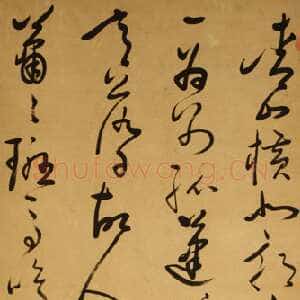 青山橫北郭
一為別孤蓬
意落日故人
蕭々班馬鳴